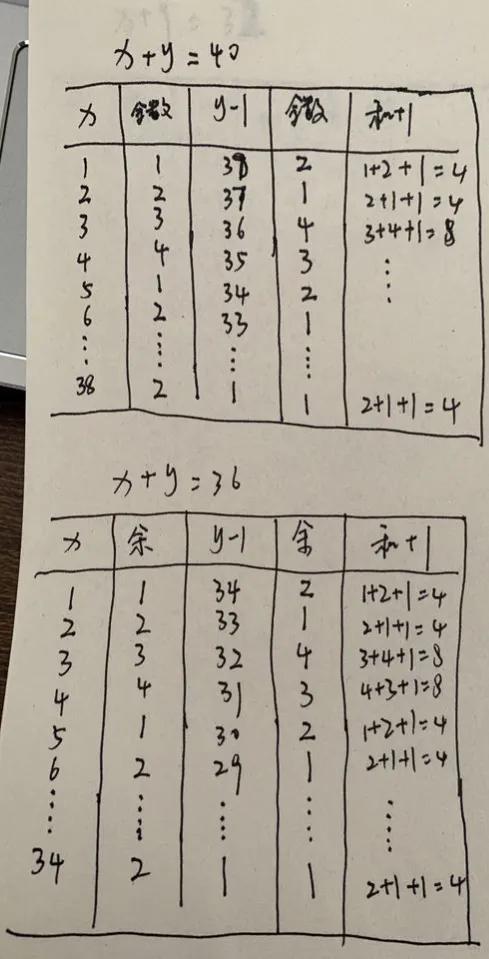 x+y=40
x 余数 y-1 余数 和+1
1 1 38 2 1+2+1=4
2 2 37 1 2+1+1=4
3 3 36 4 3+4+1=8
4 4 35 3 ⋮
5 1 34 2 ⋮
6 2 33 1
⋮ ⋮ ⋮ ⋮
38 2 1 1 2+1+1=4
x+y=36
x 余 y-1 余 和+1
1 1 34 2 1+2+1=4
2 2 33 1 2+1+1=4
3 3 32 4 3+4+1=8
4 4 31 3 4+3+1=8
5 1 30 2 1+2+1=4
6 2 29 1 2+1+1=4
⋮ ⋮ ⋮ ⋮ ⋮
34 2 1 1 2+1+1=4